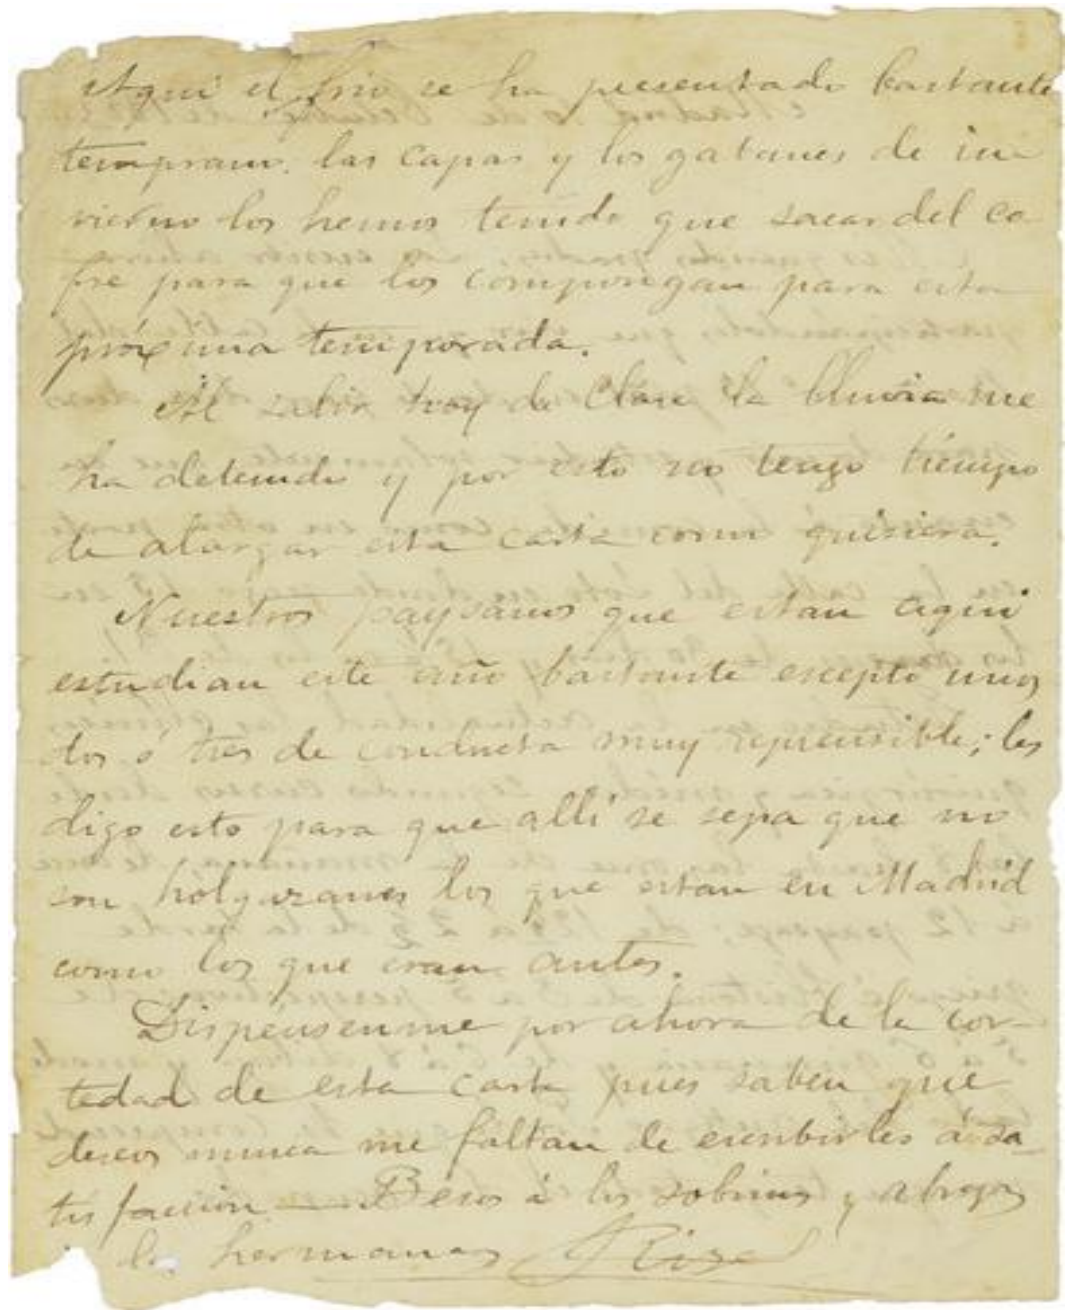 Aqui el frio se ha presentado bastante
temprano. las capas y los gabanes de in-
vierno los hemos tenido que sacar del co-
fre para que los compongan para esta
próxima temporada.
Al salir hoy de clase la lluvia me
ha detenido y por esto no tengo tiempo
de alargar esta carta como quisiera.
Nuestros paysanos que estan aqui
estudian este año bastante escepto unos
dos ó tres de conducta muy reprensible; les
digo esto para que allí se sepa que no
son holgazanes los que estan en Madrid
como los que eran antes.
Dispensenme por ahora de la cor-
tedad de esta carta pues saben que
deseos nunca me faltan de escribirles á sa-
tisfaccion — Besos á los sobrinos y abrazos
á las hermanas Rizal